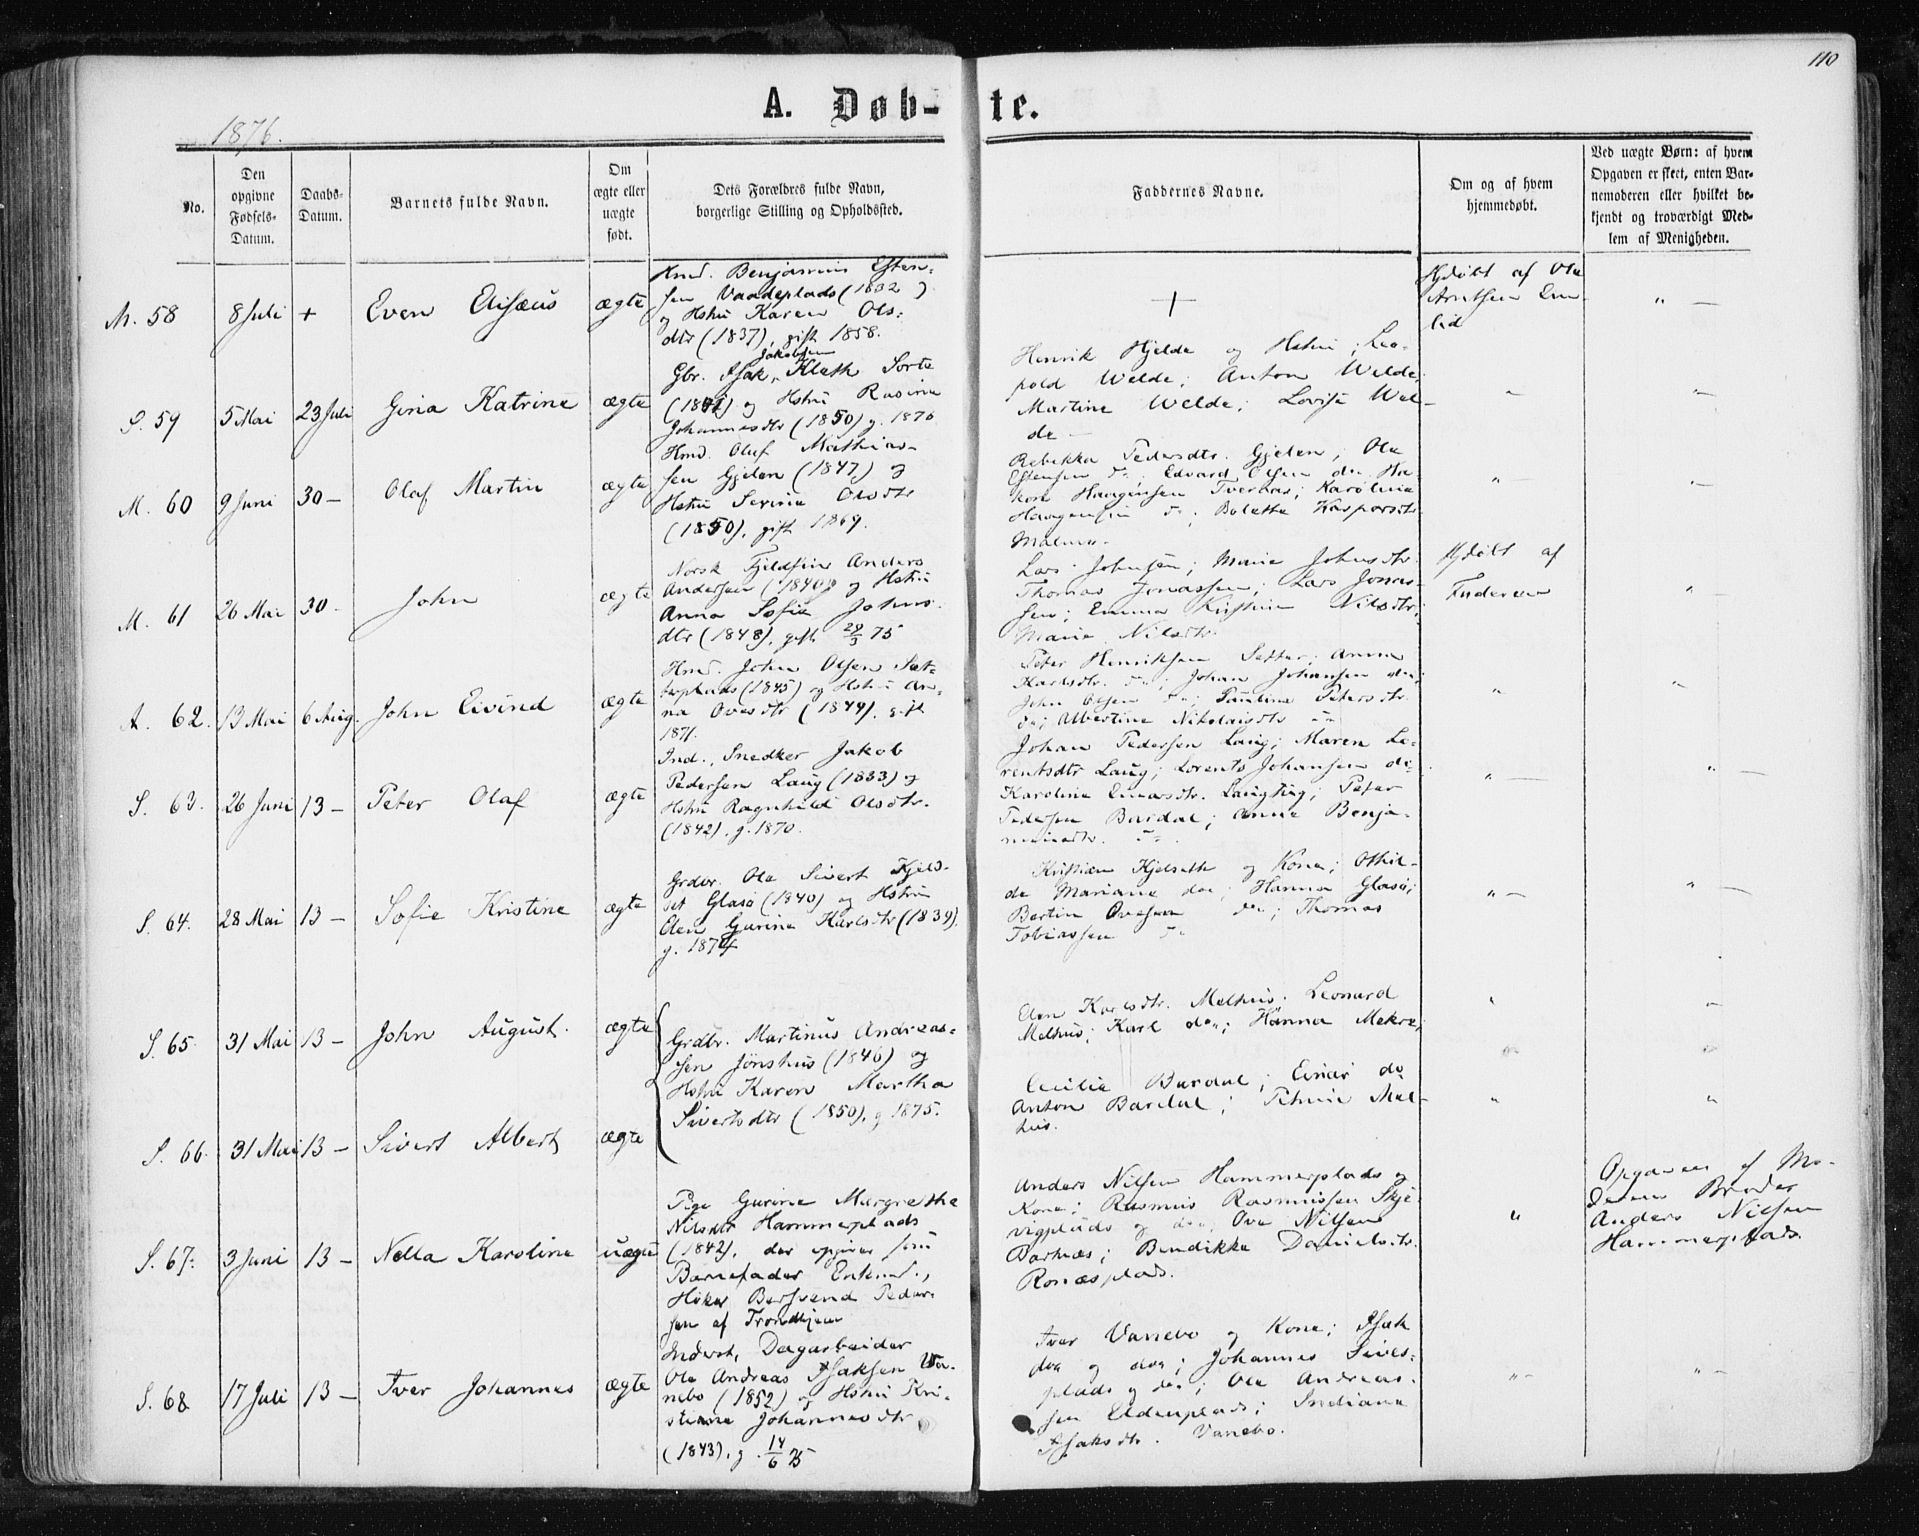 110
A. Døb-te.
1876.
No.
Den
opgivne
Fødsels-
Datum.
Daabs-
Datum.
Barnets fulde Navn.
Om
ægte eller
uægte
født.
Dets Forældres fulde Navn,
borgerlige Stilling og Opholdssted.
Faddernes Navne.
Om og af hvem
hjemmedøbt.
Ved uægte Børn: af hvem
Opgaven er skeet, enten Bar-
nemoderen eller hvilket be-
kjendt og troværdigt Med-
lem af Menigheden.
M. 58
8 Juli
+
Even Elisæus
ægte
Hmd. Benjamin Esten-
sen Vaadeplads (1832)
og Hstru Karen Ols-
dtr (1837), gift 1858.
+
Hjdøbt af Ole
Arntsen
lid
" —
S. 59
5 Mai
23 Juli
Gina Katrine
ægte
Jakobsen
Gbr. Isak Klæth Sorte
og Hstru Rasine
Johannesdtr (1850) g. 1876
Henrik Hjelde og Hstru; Leo-
pold Welde; Anton Welde;
Martine Welde; Lovise Wel-
de —
" —
" —
M. 60
9 Juni
30 —
Olaf Martin
ægte
Hmd. Oluf Mathias-
sen Gjelen (1847) og
Hstru Serine Olsdtr
(1850), gift 1869.
Rebekka Pedersdtr. Gjelen; Ole
Estensen do; Edvard Olsen do; Ha-
kon Haagensen Tvernæs; Karoline
Haagensen do; Bolette Kaspersdtr.
Malmen.
" —
" —
M. 61
26 Mai
30 -
John
ægte
Norsk Fjeldfin Anders
Andersen (1840) og Hstru
Anna Sofie Johns-
dtr (1848), gift 29/3 75
Lars Johnsen; Marie Johnsdtr.
Thomas Jonassen; Lars Jonas-
sen; Emma Kristine Nilsdtr;
Marie Nilsdtr.
Hjdøbt af
Faderen
" —
A. 62.
13 Mai
6 Aug.
John Eivind
ægte
Hmd. John Olsen Sæt-
terplads (1845) og Hstru An-
na Ovesdtr (1849), gift
1871.
Peter Henriksen Setter; Anna
Karlsdtr. do; Johan Johansen do;
John Olsen do; Pauline Petersdtr.
do; Albertine Nikolaisdtr do
"
" —
S. 63.
26 Juni
13 —
Peter Olaf
ægte
Ind., Snedker Jakob
Pedersen Laug (1833) og
Hstru Ragnhild Olsdtr.
(1842), g. 1870.
Johan Pedersen Laug; Maren Lo-
rentsdtr Laug; Lorents Johansen do
Karoline Einarsdtr. Laugtug; Peter
Pedersen Bardal; Anne Benja-
minsdtr. do
" —
" —
S. 64.
28 Mai
13 —
Sofie Kristine
ægte
Grdbr. Ole Sivert Kjels-
set Glasø (1840) og Hstru
Elen Gurine Karlsdtr (1839)
g. 1874
Kristian Hjelseth og Kone; Othil-
de Mariane do; Hanna Glasø;
Bertin Ovesen do; Thomas
Tobiassen do
" —
" —
S. 65.
31 Mai
13 —
John August.
ægte
Grdbr. Martinus Andreas-
sen Jønshus (1846) og
Hstru Karen Martha
Sivertsdtr (1850), g 1875.
Elen Karlsdtr. Melhus; Leonard
Melhus; Karl do; Hanna Mekra;
"
" —
S. 66.
31 Mai
13 —
Sivert Albert
ægte
Cecilie Bardal; Einar do
Anton Bardal; Petrine Mel-
hus.
"
"
S. 67.
3 Juni
13 —
Nella Karoline
uægte
Pige Gurine Margrethe
Nilsdtr Hammerplads
(1842), der opgiver som
Barnefader Enkmd.,
Høker Bersvend Peder-
sen af Trondhjem
Anders Nilsen Hammerplads og
Kone; Rasmus Rasmussen Skje-
vigplads og do; Ove Nilsen
Barhaes; Bendikke Danielsdtr.
Ronæsplads.
"
Opgaven af Mo-
deren Broder
Anders Nilsen
Hammerplads.
S. 68
17 Juli
13 —
Iver Johannes
ægte
Inderst, Dagarbeider
Ole Andreas Isaksen Va-
nebo (1852) og Hstru Kri-
stenne Johannesdtr
(1843), g. 14/6 75
Iver Vanebo og Kone; Isak
do og do; Johannes Sives-
plads og do; Ole Andreas-
sen Eldenplads; Indiane
Isaksdtr. Vanebo.
" —
" —